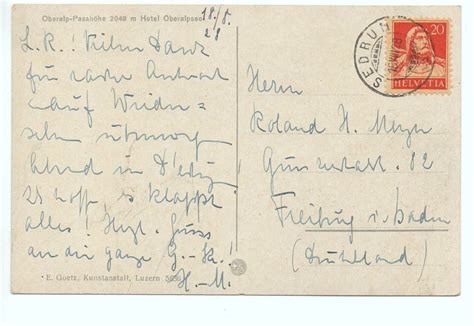 Oberalp-Passhöhe 2048 m Hotel Oberalpsee
18./8.
28
L. R.! Vielen Dank
für rasche Antwort
auf Wieder-
sehen übermorg
Abend in
hoff, es klappt
alles! Herzl. Gruss
an die ganze G.-
H.-M.
E. Goetz, Kunstanstalt, Luzern
SEDRUN
20
HELVETIA
Herrn
Roland H. Meyer
82
Freiburg i. Baden
(Deutschland)